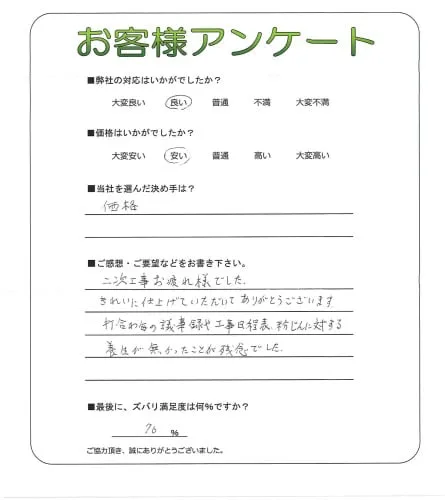 お客様アンケート
■弊社の対応はいかがでしたか?
大変良い 良い 普通 不満 大変不満
■価格はいかがでしたか?
大変安い 安い 普通 高い 大変高い
■当社を選んだ決め手は?
価格
■ご感想・ご要望などをお書き下さい。
二次工事お疲れ様でした。
きれいに仕上げていただいてありがとうございます
打合わ毎の議事録や工事日程表、粉じんに対する
養生が無かったことが残念でした。
■最後に、ズバリ満足度は何%ですか?
%
ご協力頂き、誠にありがとうございました。